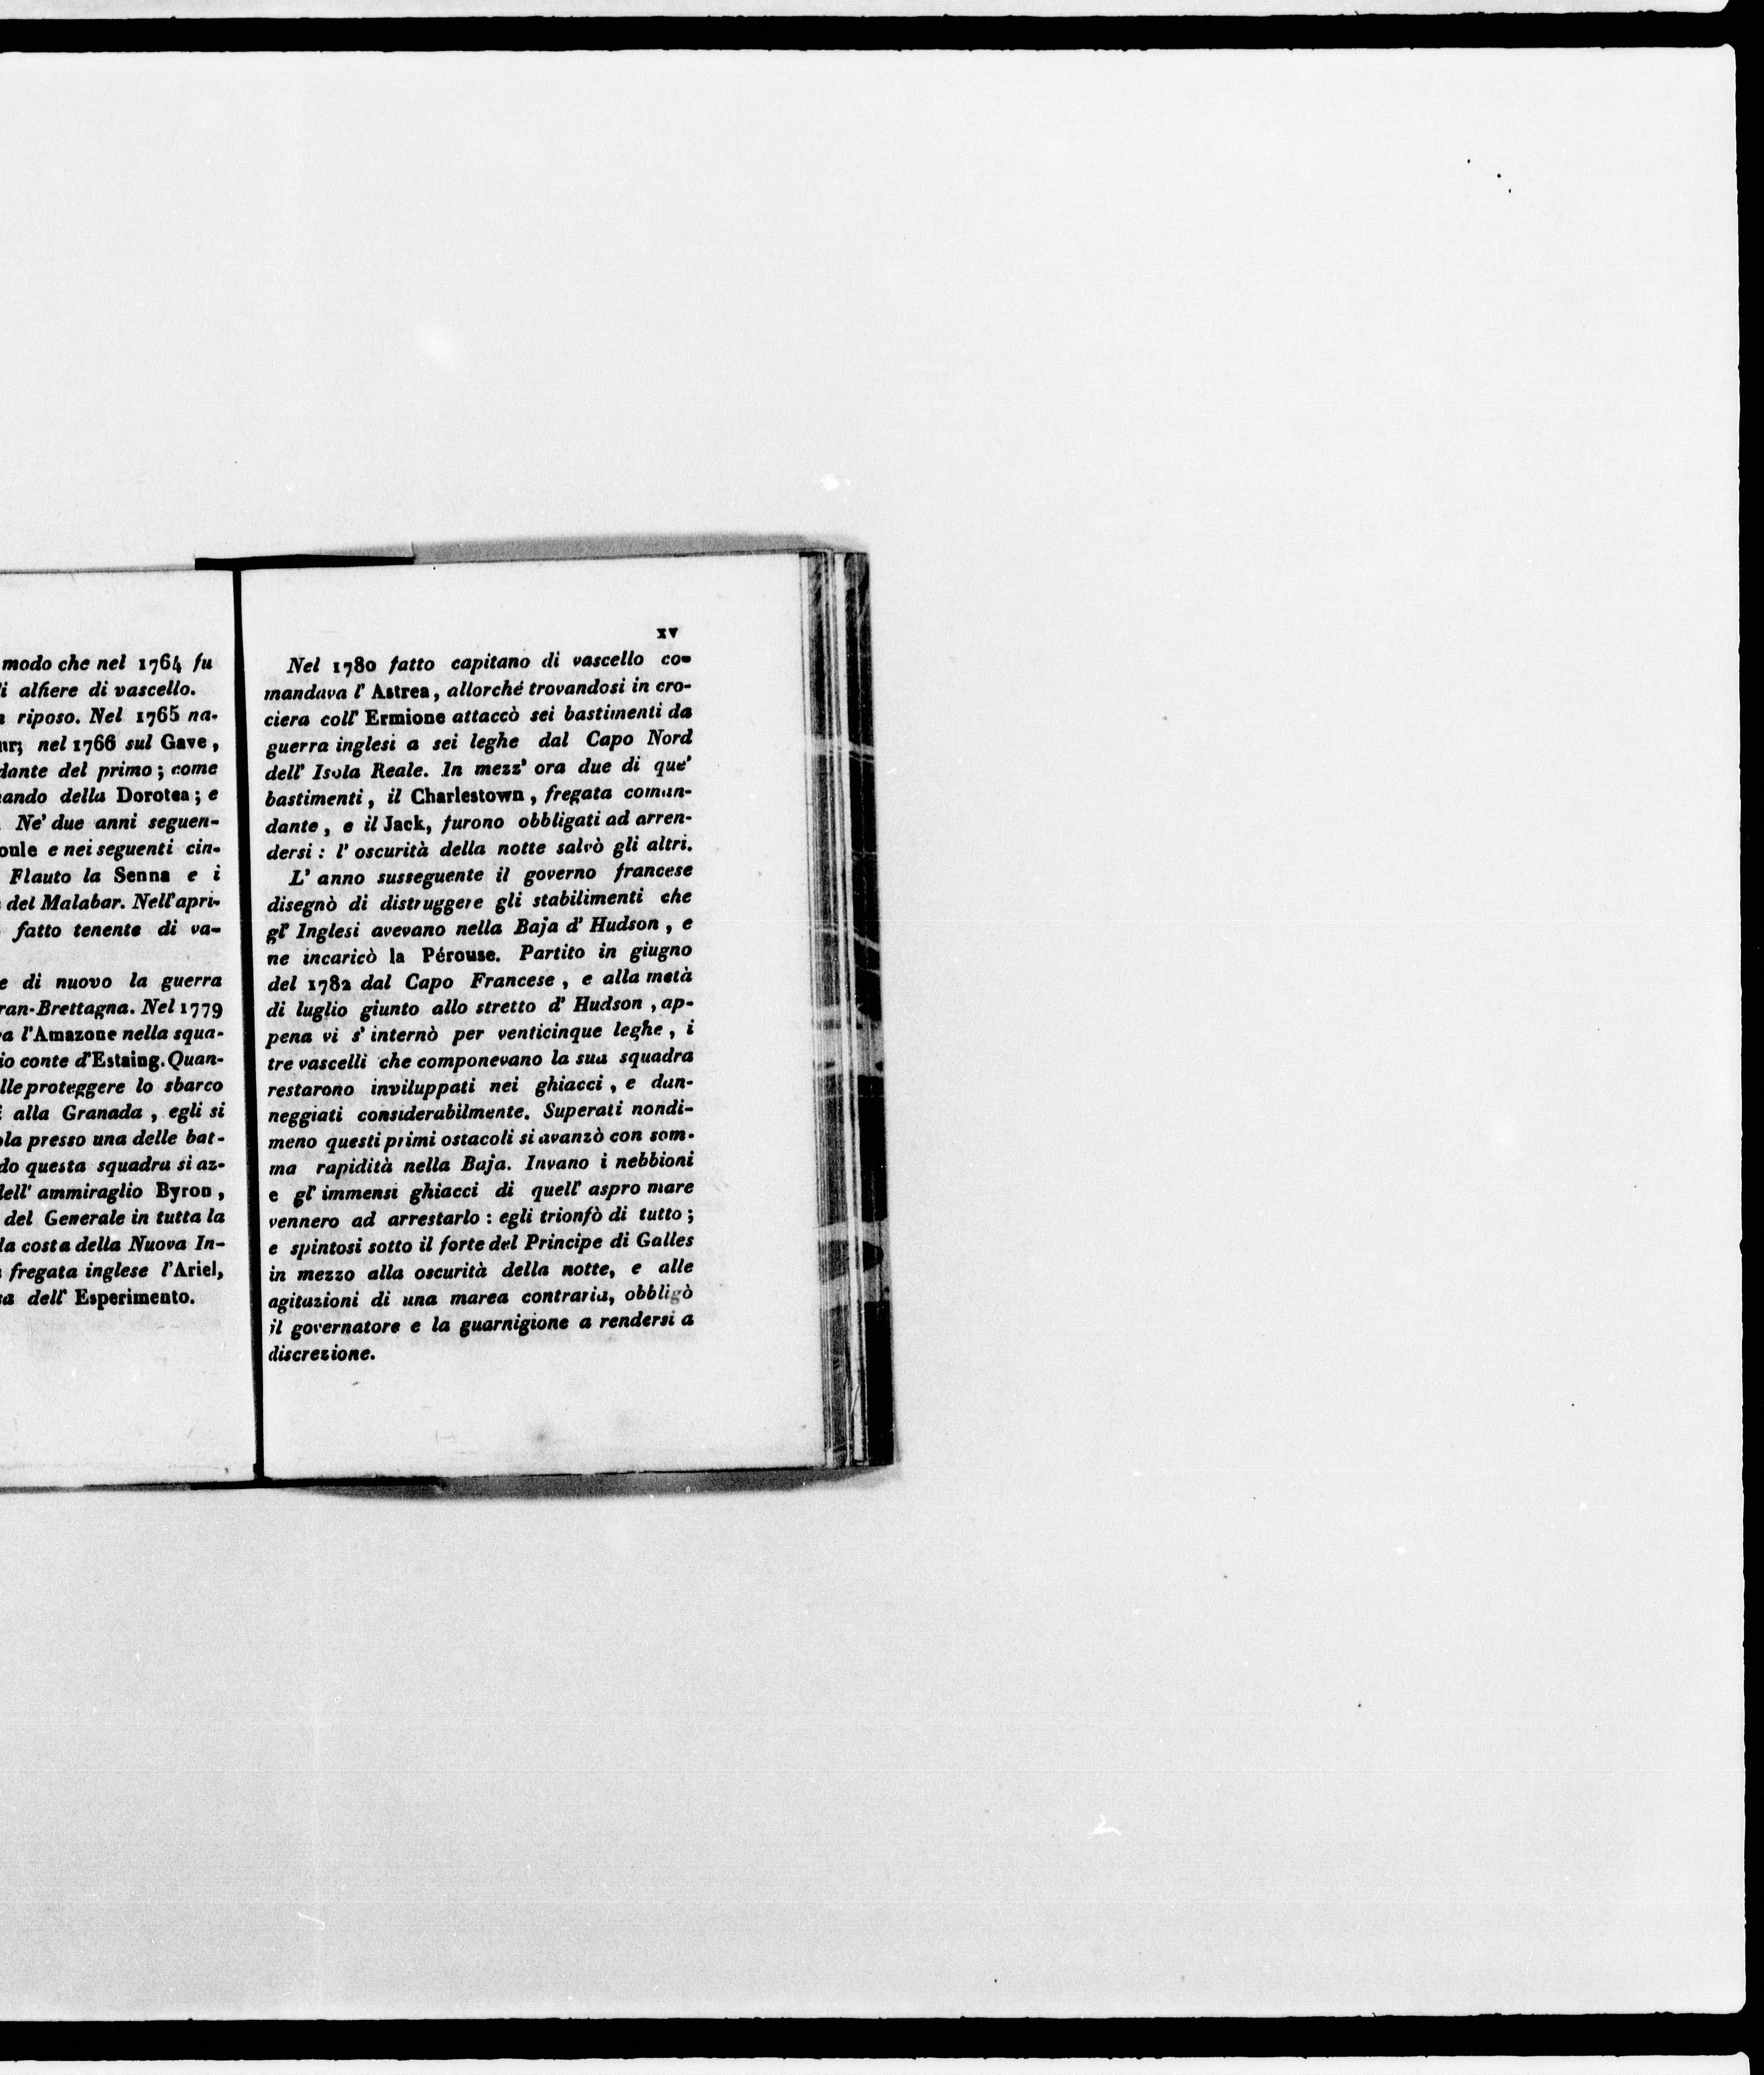 modo che nel 1764 fu
alfiere di vascello.
riposo. Nel 1765 na-
nel 1766 sul Gave,
del primo; come
della Dorotea; e
Ne' due anni seguen-
e nei seguenti cin-
Flauto la Senna e i
del Malabar. Nell'apri-
fatto tenente di va-
di nuovo la guerra
ran-Brettagna. Nel 1779
l'Amazone nella squa-
conte d'Estaing. Quan-
proteggere lo sbarco
alla Granada, egli si
presso una delle bat-
questa squadra si az-
dell' ammiraglio Byron,
del Generale in tutta la
la costa della Nuova In-
fregata inglese l'Ariel,
dell' Esperimento.
xv
Nel 1780 fatto capitano di vascello co-
mandava l' Astrea, allorché trovandosi in cro-
ciera coll' Ermione attaccò sei bastimenti da
guerra inglesi a sei leghe dal Capo Nord
dell' Isola Reale. In mezz' ora due di que'
bastimenti, il Charlestown, fregata coman-
dante, e il Jack, furono obbligati ad arren-
dersi: l' oscurità della notte salvò gli altri.
L' anno susseguente il governo francese
disegnò di distruggere gli stabilimenti che
gl' Inglesi avevano nella Baja d' Hudson, e
ne incaricò la Pérouse. Partito in giugno
del 1782 dal Capo Francese, e alla metà
di luglio giunto allo stretto d' Hudson, ap-
pena vi s' internò per venticinque leghe, i
tre vascelli che componevano la sua squadra
restarono inviluppati nei ghiacci, e dan-
neggiati considerabilmente. Superati nondi-
meno questi primi ostacoli si avanzò con som-
ma rapidità nella Baja. Invano i nebbioni
e gl' immensi ghiacci di quell' aspro mare
vennero ad arrestarlo: egli trionfò di tutto;
e spintosi sotto il forte del Principe di Galles
in mezzo alla oscurità della notte, e alle
agitazioni di una marea contraria, obbligò
il governatore e la guarnigione a rendersi a
discrezione.